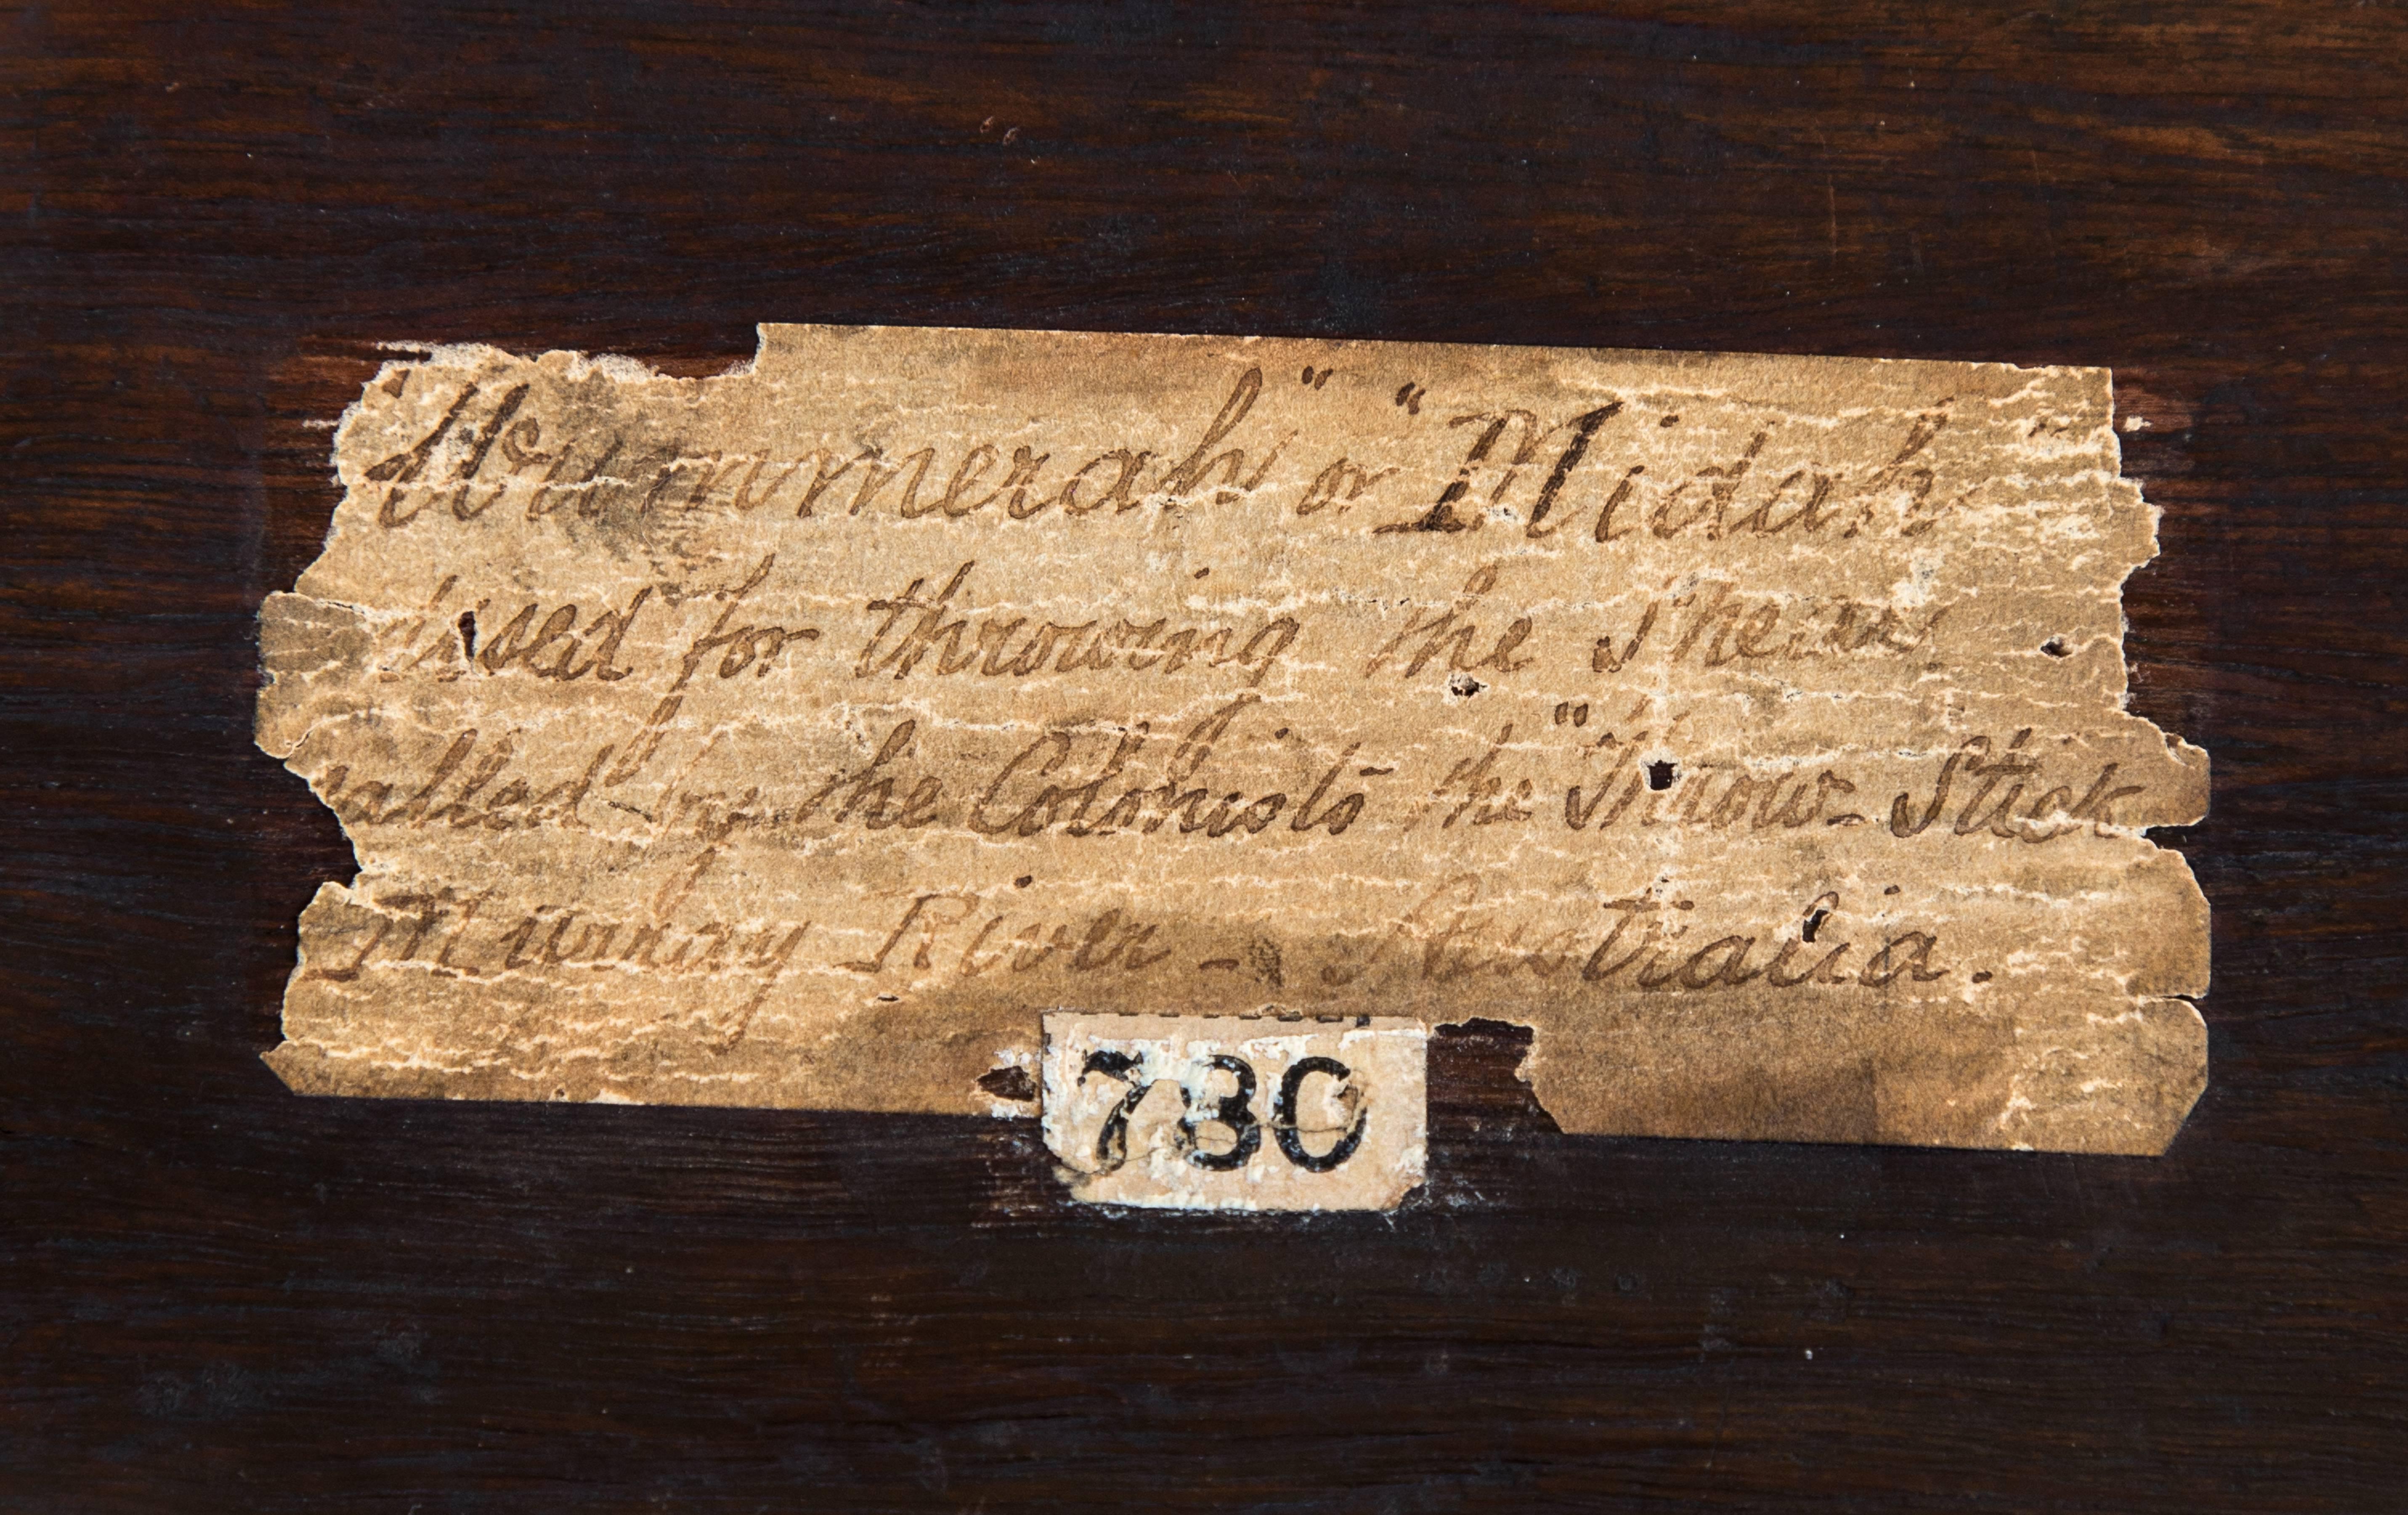 Wummerah" or "Midah"
used for throwing the Spear
called by the Colonists the "Throw-Stick
Murray River - Australia.
780